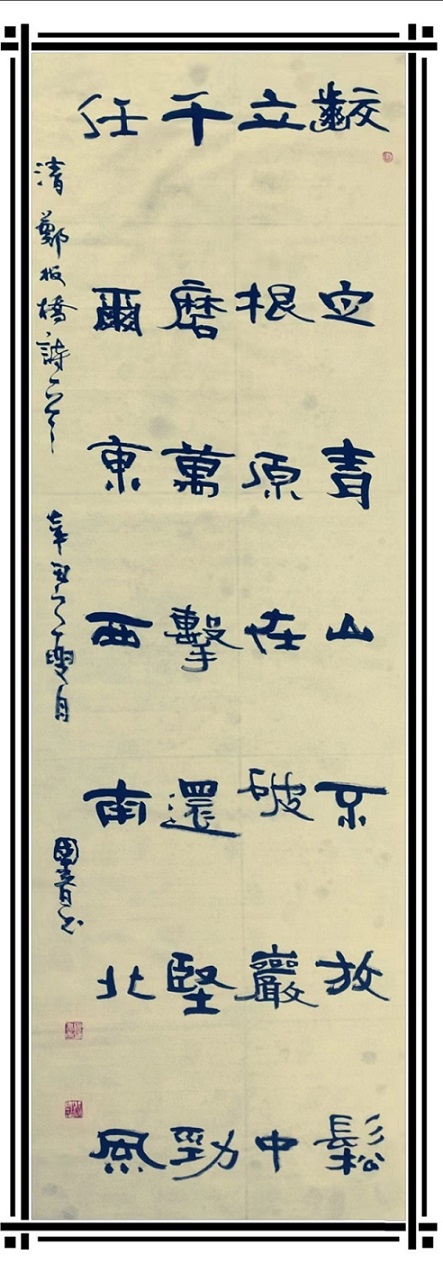 齩定青山不放鬆
立根原在破巖中
千磨萬擊還堅勁
任爾東西南北風
清 鄭板橋詩一首 辛丑之夏月 國青书